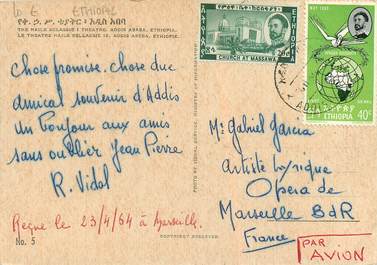 ETHIOPIE
የቀ. ኃ. ሥ. ቴያትር ፡ አዲስ አበባ
THE HAILE SELLASSIE I THEATRE. ADDIS ABABA. ETHIOPIA.
LE THEATRE HAILE SELLASSIE 1ER. ADDIS ABEBA. ETHIOPIE.
Chose promise. chose due
amical souvenir d'Addis
un bonjour aux amis
sans oublier Jean Pierre
R. Vidal
Reçue le 23/4/64 à Marseille.
No. 5
COPYRIGHT RESERVED.
CHURCH AT MASSAWA
MAY 1963
ETHIOPIA
40c
Mr Gabriel Garcia
Artiste Lyrique
Opera de
Marseille BdR
France
PAR
AVION